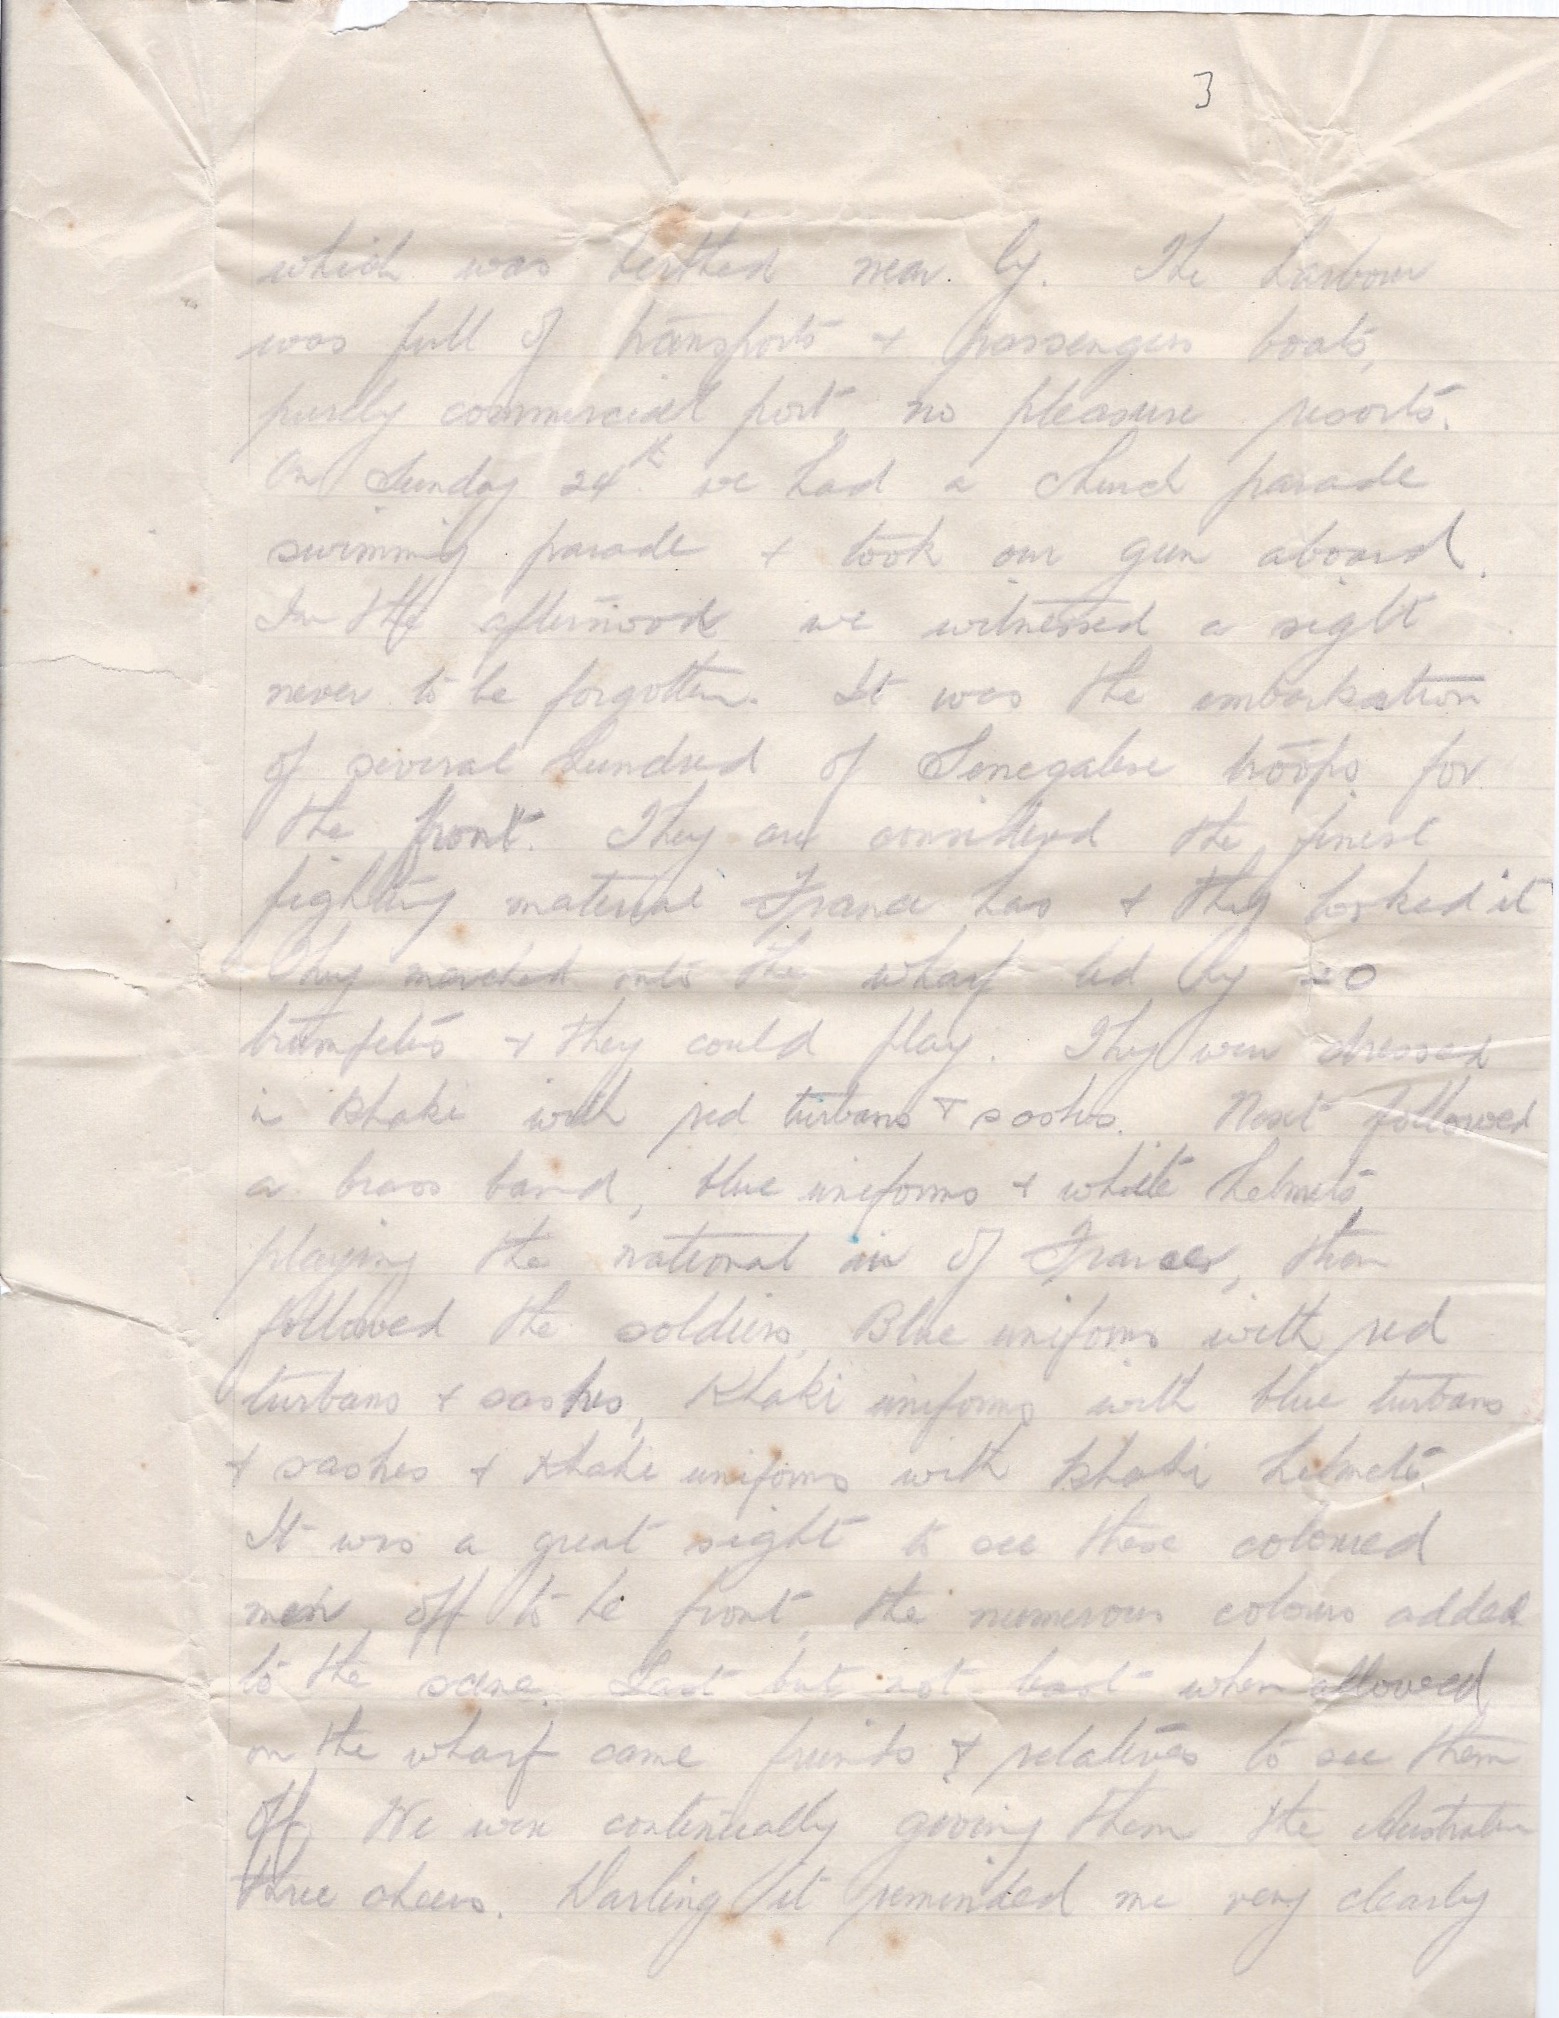 3
which was berthed near by. The harbour
was full of transports + passengers boats,
purely commercial port, no pleasure resorts.
On Sunday 24th we had a church parade
swimming parade + took our gun aboard.
In the afternoon we witnessed a sight
never to be forgotten. It was the embarkation
of several hundred of Senegalese troops for
the front. They are considered the finest
fighting material France has + they looked it
They marched onto the wharf led by 20
trumpeters + they could play. They were dressed
in khaki with red turbans + sashes. Next followed
a brass band, blue uniforms + white helmets,
playing the national air of France, then
followed the soldiers, Blue uniforms with red
turbans + sashes, Khaki uniforms with blue turbans
+ sashes + Khaki uniforms with khaki helmets.
It was a great sight to see these coloured
men off to he front, the numerous colours added
to the scene. Last but not least when allowed
on the wharf came friends + relatives to see them
off. We were continually giving them the Australian
three cheers. Darling it reminded me very clearly